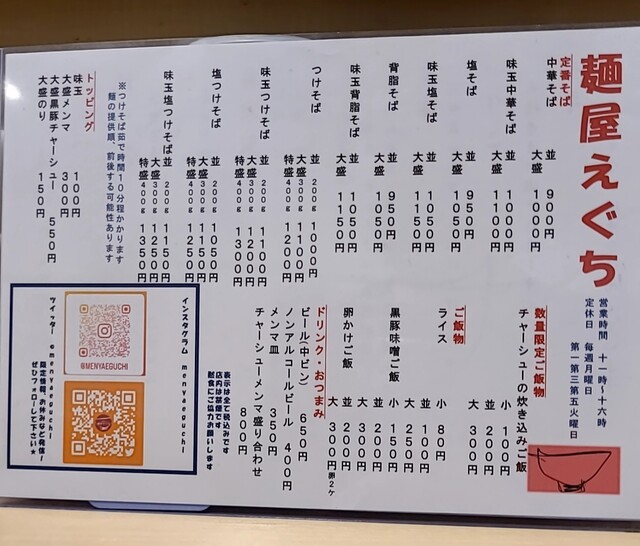 麺屋えぐち
営業時間 十一時～十六時
定休日 毎週月曜日
第一第三第五火曜日
定番そば
中華そば
並 900円
大盛 1000円
味玉中華そば
並 1000円
大盛 1100円
塩そば
並 950円
大盛 1050円
味玉塩そば
並 1050円
大盛 1150円
背脂そば
並 950円
大盛 1050円
味玉背脂そば
並 1050円
大盛 1150円
つけそば
並 200g 1000円
大盛 300g 1100円
特盛 400g 1200円
味玉つけそば
並 200g 1100円
大盛 300g 1200円
特盛 400g 1300円
塩つけそば
並 200g 1050円
大盛 300g 1150円
特盛 400g 1250円
味玉塩つけそば
並 200g 1150円
大盛 300g 1250円
特盛 400g 1350円
※つけそば茹で時間10分程かかります
麺の提供順、前後する可能性あります
トッピング
味玉 100円
大盛メンマ 300円
大盛黒豚チャーシュー 550円
大盛のり 150円
数量限定ご飯物
チャーシューの炊き込みご飯
並 200円
大 300円
ご飯物
ライス
小 80円
並 100円
大 250円
黒豚味噌ご飯
小 150円
並 200円
大 300円
卵かけご飯
並 200円
大 300円 卵2ケ
ドリンク・おつまみ
ビール(中ビン) 650円
ノンアルコールビール 400円
メンマ皿 350円
チャーシューメンマ盛り合わせ
800円
表示は全て税込みです
店内は禁煙です
黙食にご協力お願いします
インスタグラム menyaeguchi
@MENYAEGUCHI
ツイッター emenyaeguchi
限定情報、お休みなど発信!
ぜひフォローして下さい★